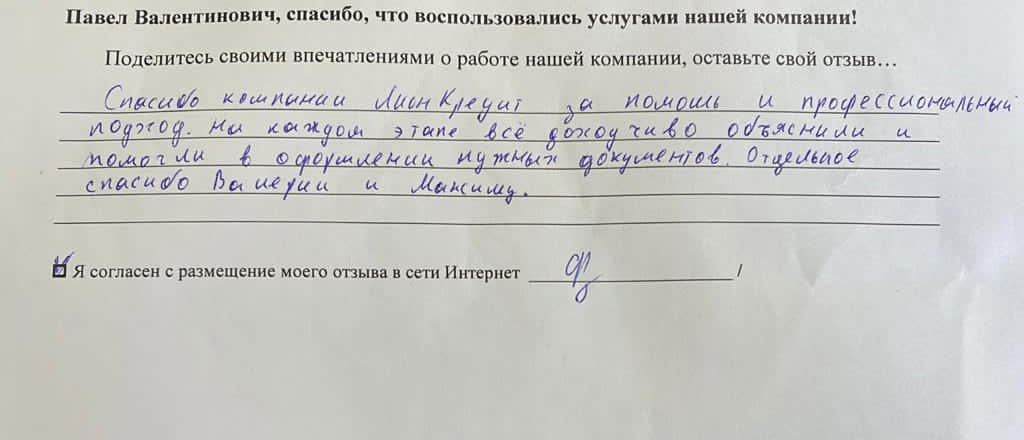 Павел Валентинович, спасибо, что воспользовались услугами нашей компании!
Поделитесь своими впечатлениями о работе нашей компании, оставьте свой отзыв…
Спасибо компании ЛионКредит за помошь и профессиональный
подход. На каждом этапе всё доходчиво объяснили и
помогли в оформлении нужных документов. Отдельное
спасибо Валерии и Максиму.
Я согласен с размещение моего отзыва в сети Интернет /